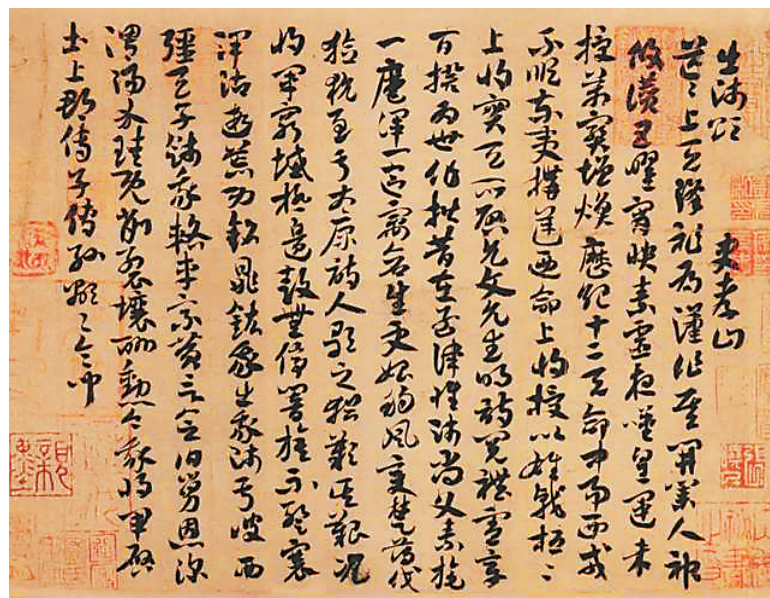 出師頌 史孝山
茫茫上天降祚為漢作基開業人神
攸讚五曜宵映素靈夜嘆皇運未
授萬寶增煥歷紀十二天命中易西戎
不順東夷構逆西命上將授以雄戟桓桓
上將寶天所啟允文允武明詩閱禮憲章
百揆為世作楷昔在孟津惟師尚父素旄
一麾渾一區宇蒼生更始朔風變楚薄伐
獫狁至于太原詩人歌之猶嘆其艱況
我將軍窮域極邊鼓無停響旗不蹔褰
澤沾遐荒功銘鼎鉉我出我師于彼西
疆天子餞我輅車乘黃言念伯舅恩深
渭陽介珪既削裂壤酬勳今我將軍啟
土上郡傳子傳孫顯顯令問